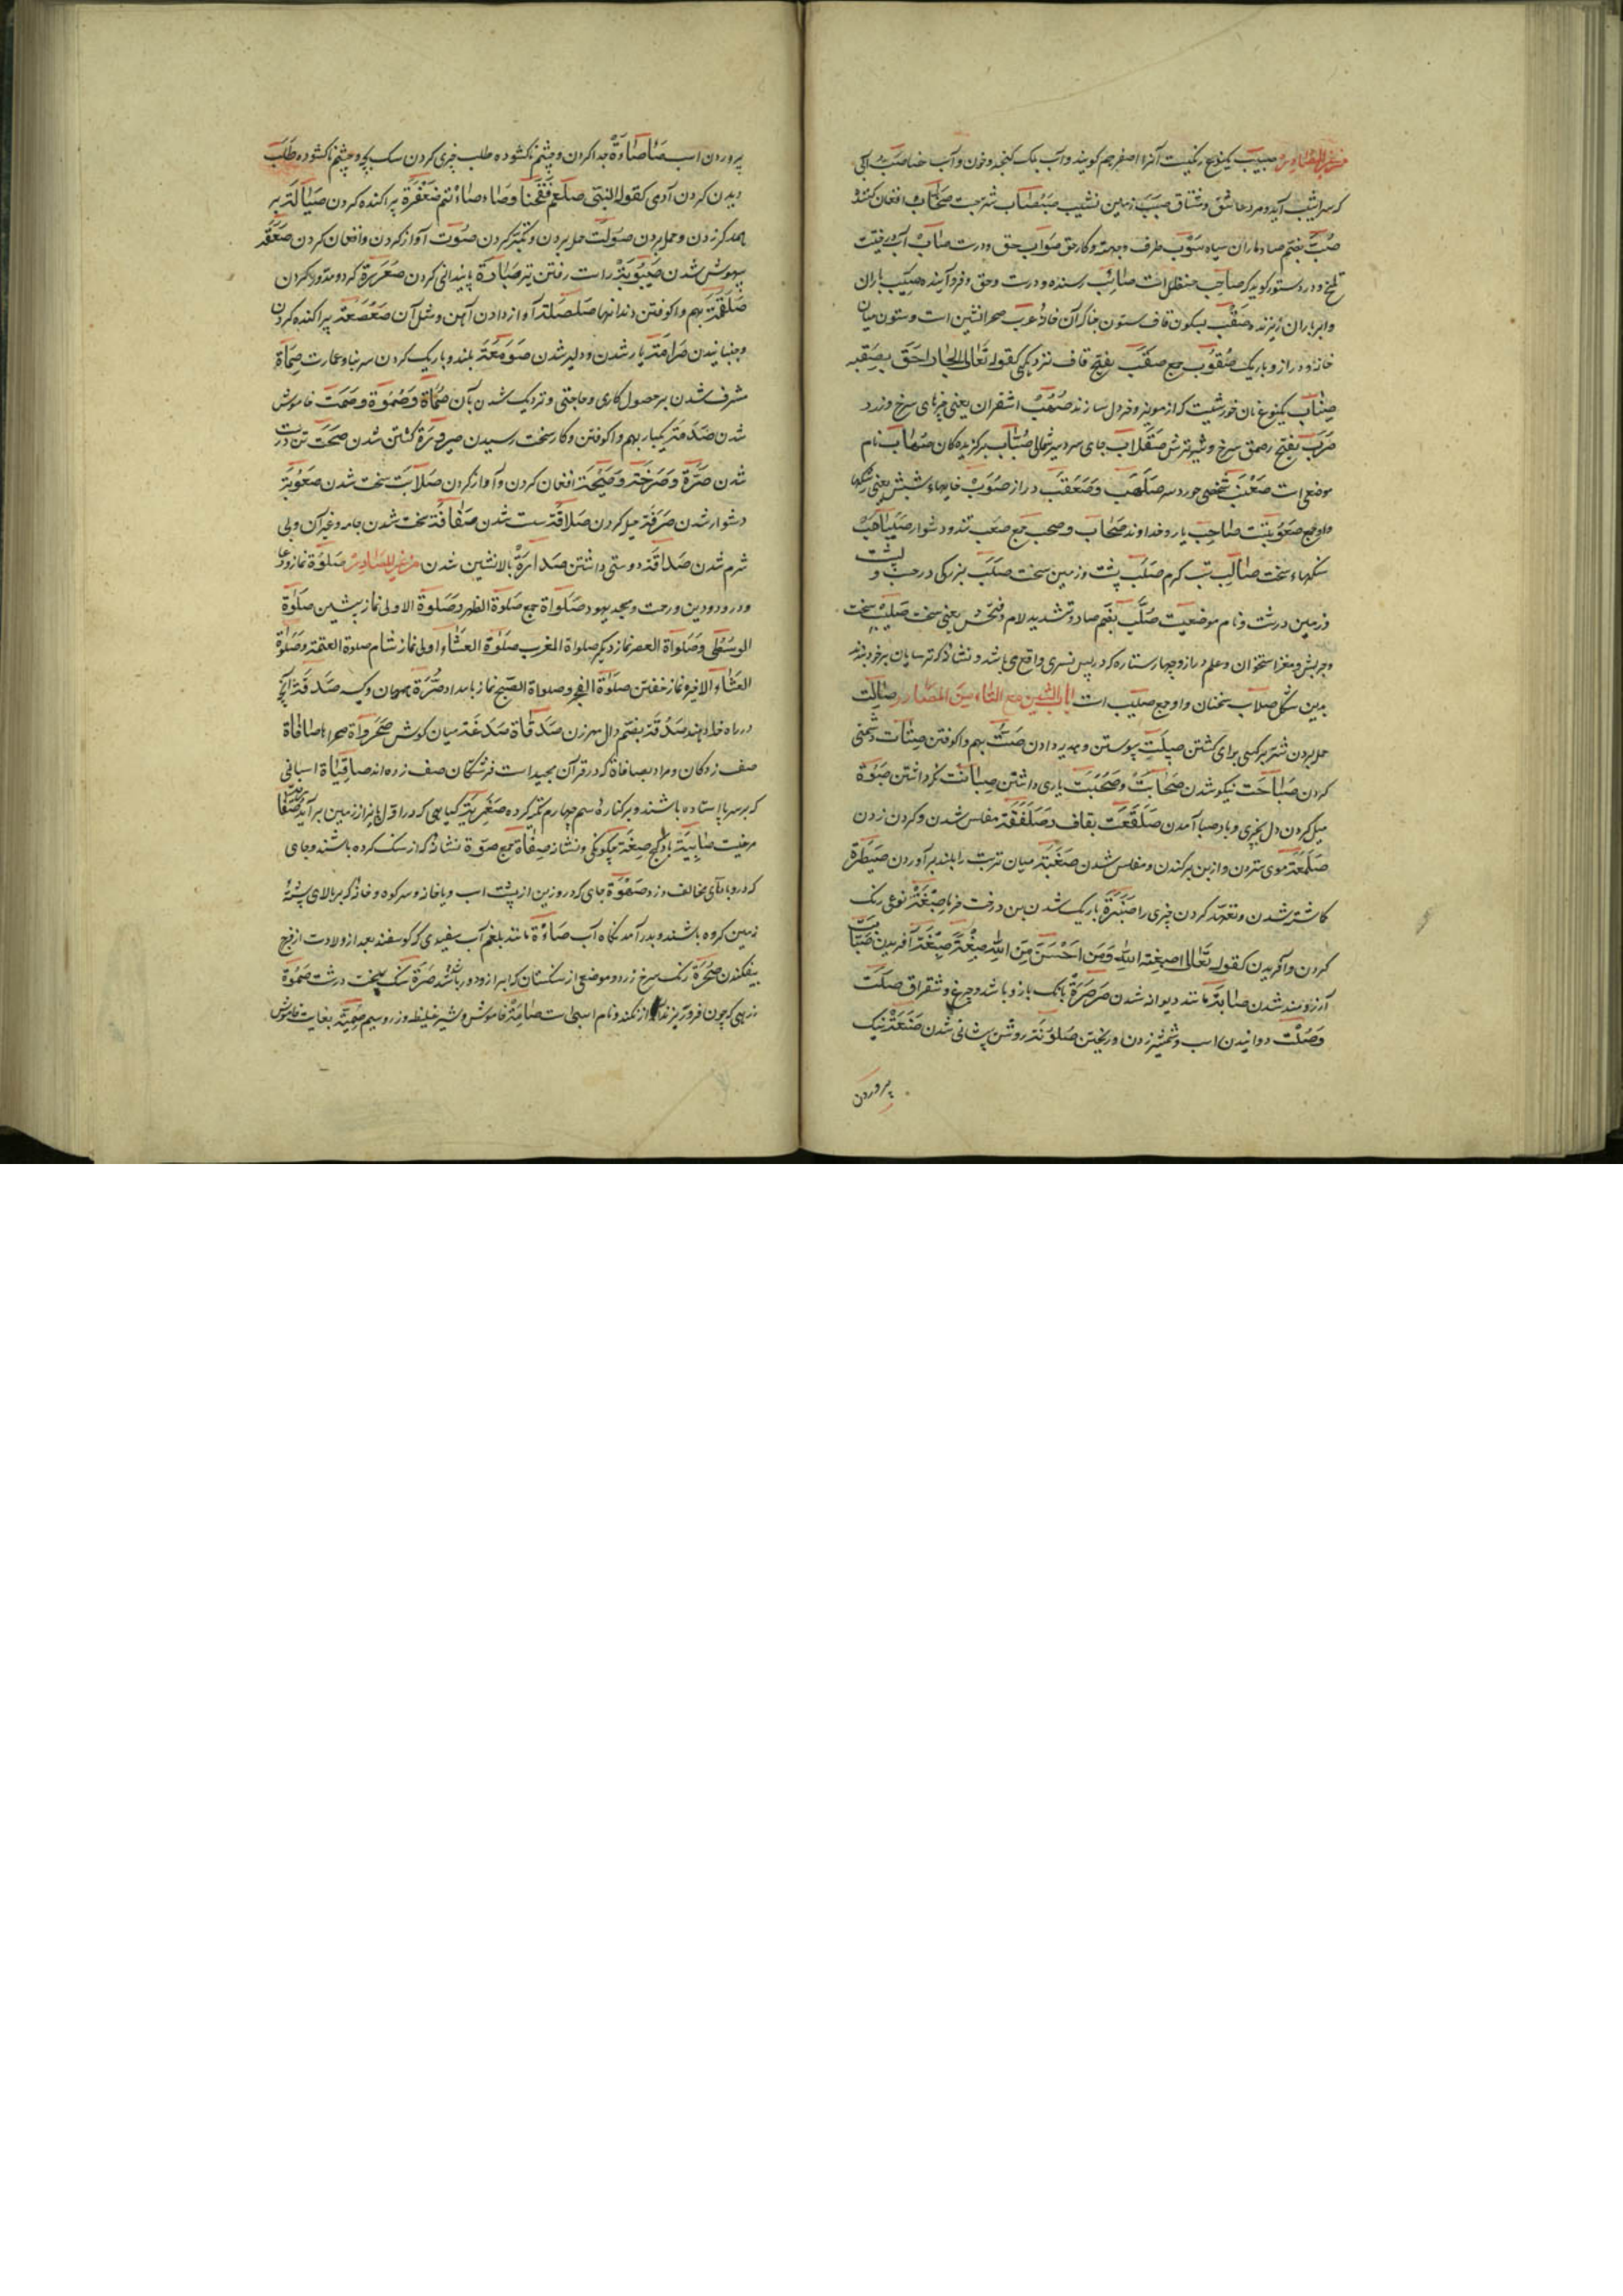 من غیر المصادر صبیب یکنوع رنکیست آنرا اصفر هم کویند و آب برک کنجد و خون و آب حنا صبب آبی
که سراشیب آید و مرد عاشق و مشتاق صبب زمین نشیب
صب بضم صاد ماران سیاه صوب طرف و جهة و کار حق صواب حق و درست صاب آب درخت
تلخ و در دستور کوید که صاحب حنظل است صائب رسنده و درست و حق و فرو آینده صیب باران
و ابر باران ریزنده صقب بسکون قاف ستون چنانکه آن خانه عرب صحرانشین است و ستون میان
خانه و دراز و باریک صقوب جمع صقب بفتح قاف نزدیکی کقوله تعالی الجار احق بصقبه
صناب یکنوع نان خورشیست که از مویز و خردل سازند صهب اشقران یعنی چیزهای سرخ و زرد
صرب بفتح را صمغ سرخ و شیر ترش صقلاب جای سردسیر شمالی صیاب برکزیده کان صهاب نام
موضعی است شخصی خورد سر صلهب و صعقب دراز صئب خایهاء شپش یعنی رشکها
صاحب یار و خداوند صحاب و صحب جمع صعب تند و دشوار
سنکهاء سخت صالب تب کرم صلب پشت و زمین سخت صلب بزرکی در حسب و پشت
و زمین درشت و نام موضعیست صلب بضم صاد و تشدید لام و فتحش یعنی سخت صلیب سخت
و چربش و مغز استخوان و علم دراز و چهار ستاره که در پس نسری واقع می باشد و نشانه که ترسایان بر خود بندند
بدین شکل صلاب سختان و او جمع صلیب است مع التاء من المصادر
حمله بردن شتر بر کسی برای کشتن صلت پیوستن و هدیه دادن صت بهم واکوفتن صتات دشمنی
کردن صباحت نیکو شدن صحابت و صحبت یاری داشتن صیانت نکه داشتن صبوة
میل کردن دل بچیزی و باد صبا آمدن صلقعت بقاف و صلفعة مفلس شدن و کردن زدن
صلمعة موی ستردن و از بن برکندن و مفلس شدن میان تربت را بلند برآوردن صیطرة
کاشته شدن و تعهد کردن چیزی را صنبرة باریک شدن بن درخت خرما صبغة نوعی رنک
کردن و آفریدن کقوله تعالی صبغة الله و من احسن من الله صبغة صبغة آفریدن صبابت
آرزومند شدن مانند دیوانه شدن صرصرة بانک باز و باشه و چرغ و شقراق صلت
و صلت دوانیدن اسب و شمشیر زدن و ریختن صلوتة روشن پیشانی شدن صنعة نیک
پروردن
پروردن اسب صاصاة بدا کردن و چشم ناکشوده طلب چیزی کردن سک بچه و چشم ناکشوده طلب
دیدن کردن آدمی کقول النبی صلعم فقحنا و صاصاتم صعفرة پراکنده کردن صیالة بر
همدکر زدن و حمله بردن صولت حمله بردن و تکبر کردن صوت آواز کردن و افغان کردن صعقة
بیهوش شدن صیبوبة راست رفتن تیر پایندانی کردن صعررة کرد و مدور کردن
صلقمة بهم واکوفتن دندانها صلصلة آواز دادن آهن و مثل آن صعصعة پراکنده کردن
و جنبانیدن صرامة یار شدن و دلیر شدن صومعة بلند و باریک کردن سر بنا و عمارت
مشرف شدن بر حصول کاری و حاجتی و نزدیک شدن بآن صماة و صموة و صمت خاموش
شدن صدمة یکبار بهم واکوفتن و کار سخت رسیدن صیرورة کشتن شدن صحت تن درست
شدن صرة و صرخة و صیحة افغان کردن و آواز کردن صلابت سخت شدن صعوبة
دشوار شدن صرفة حیله کردن صلافة سست شدن صفاقة سخت شدن جامه و غیر آن و بی
شرم شدن صداقة دوستی داشتن صدارة بالانشین شدن من غیر المصادر صلوة نماز و دعا
و درود و دین و رحمت و مسجد یهود صلواة جمع صلوة الظهر و صلوة الاولی نماز پیشین صلوة
الوسطی و صلواة العصر نماز دیکر صلواة المغرب صلوة العشاء اولی نماز شام صلوة العتمة و صلوة
العشاء الاخیره نماز خفتن صلوة الفجر و صلواة الصبح نماز بامداد صرة همیان و کیسه صدقة آنچه
در راه خدا دهند صدقة بضم دال مهر زن صدقاة صدغة میان کوش صحرواة صحراها صافاة
صف زدکان و مراد بصافاة که در قرآن مجید است فرشتکان صف زده اند صافناة اسبانی
که بر سه پا استاده باشند و بر کناره سم چهارم تکیه کرده صفریة کیاهی که در اول پائیز از زمین برآید
مرغیست باد کج صیغة چکونکی و نشانه صفاة جمع صوة نشانه که از سنک کرده باشند و جای
که در وی بادهای مخالف وزد صهوة جای که در زین از پشت اسب و یا خانه و سر کوه و خانه که بر بالای پشته
زمین کرده باشند و بدر آمدنکاه آب صاءة مانند بلغم آب سفیدی که کوسفند بعد از ولادت از فرج
بیفکند صحرة رنک سرخ زرد و موضعی از سنکستان که ابر ازو دور باشد سنک سخت درشت صموة
زرهی که چون فرو ریزند آواز نکند و نام اسبی است صامتة خاموش و شیر غلیظ و زر و سیم صمیتة بغایت خاموش